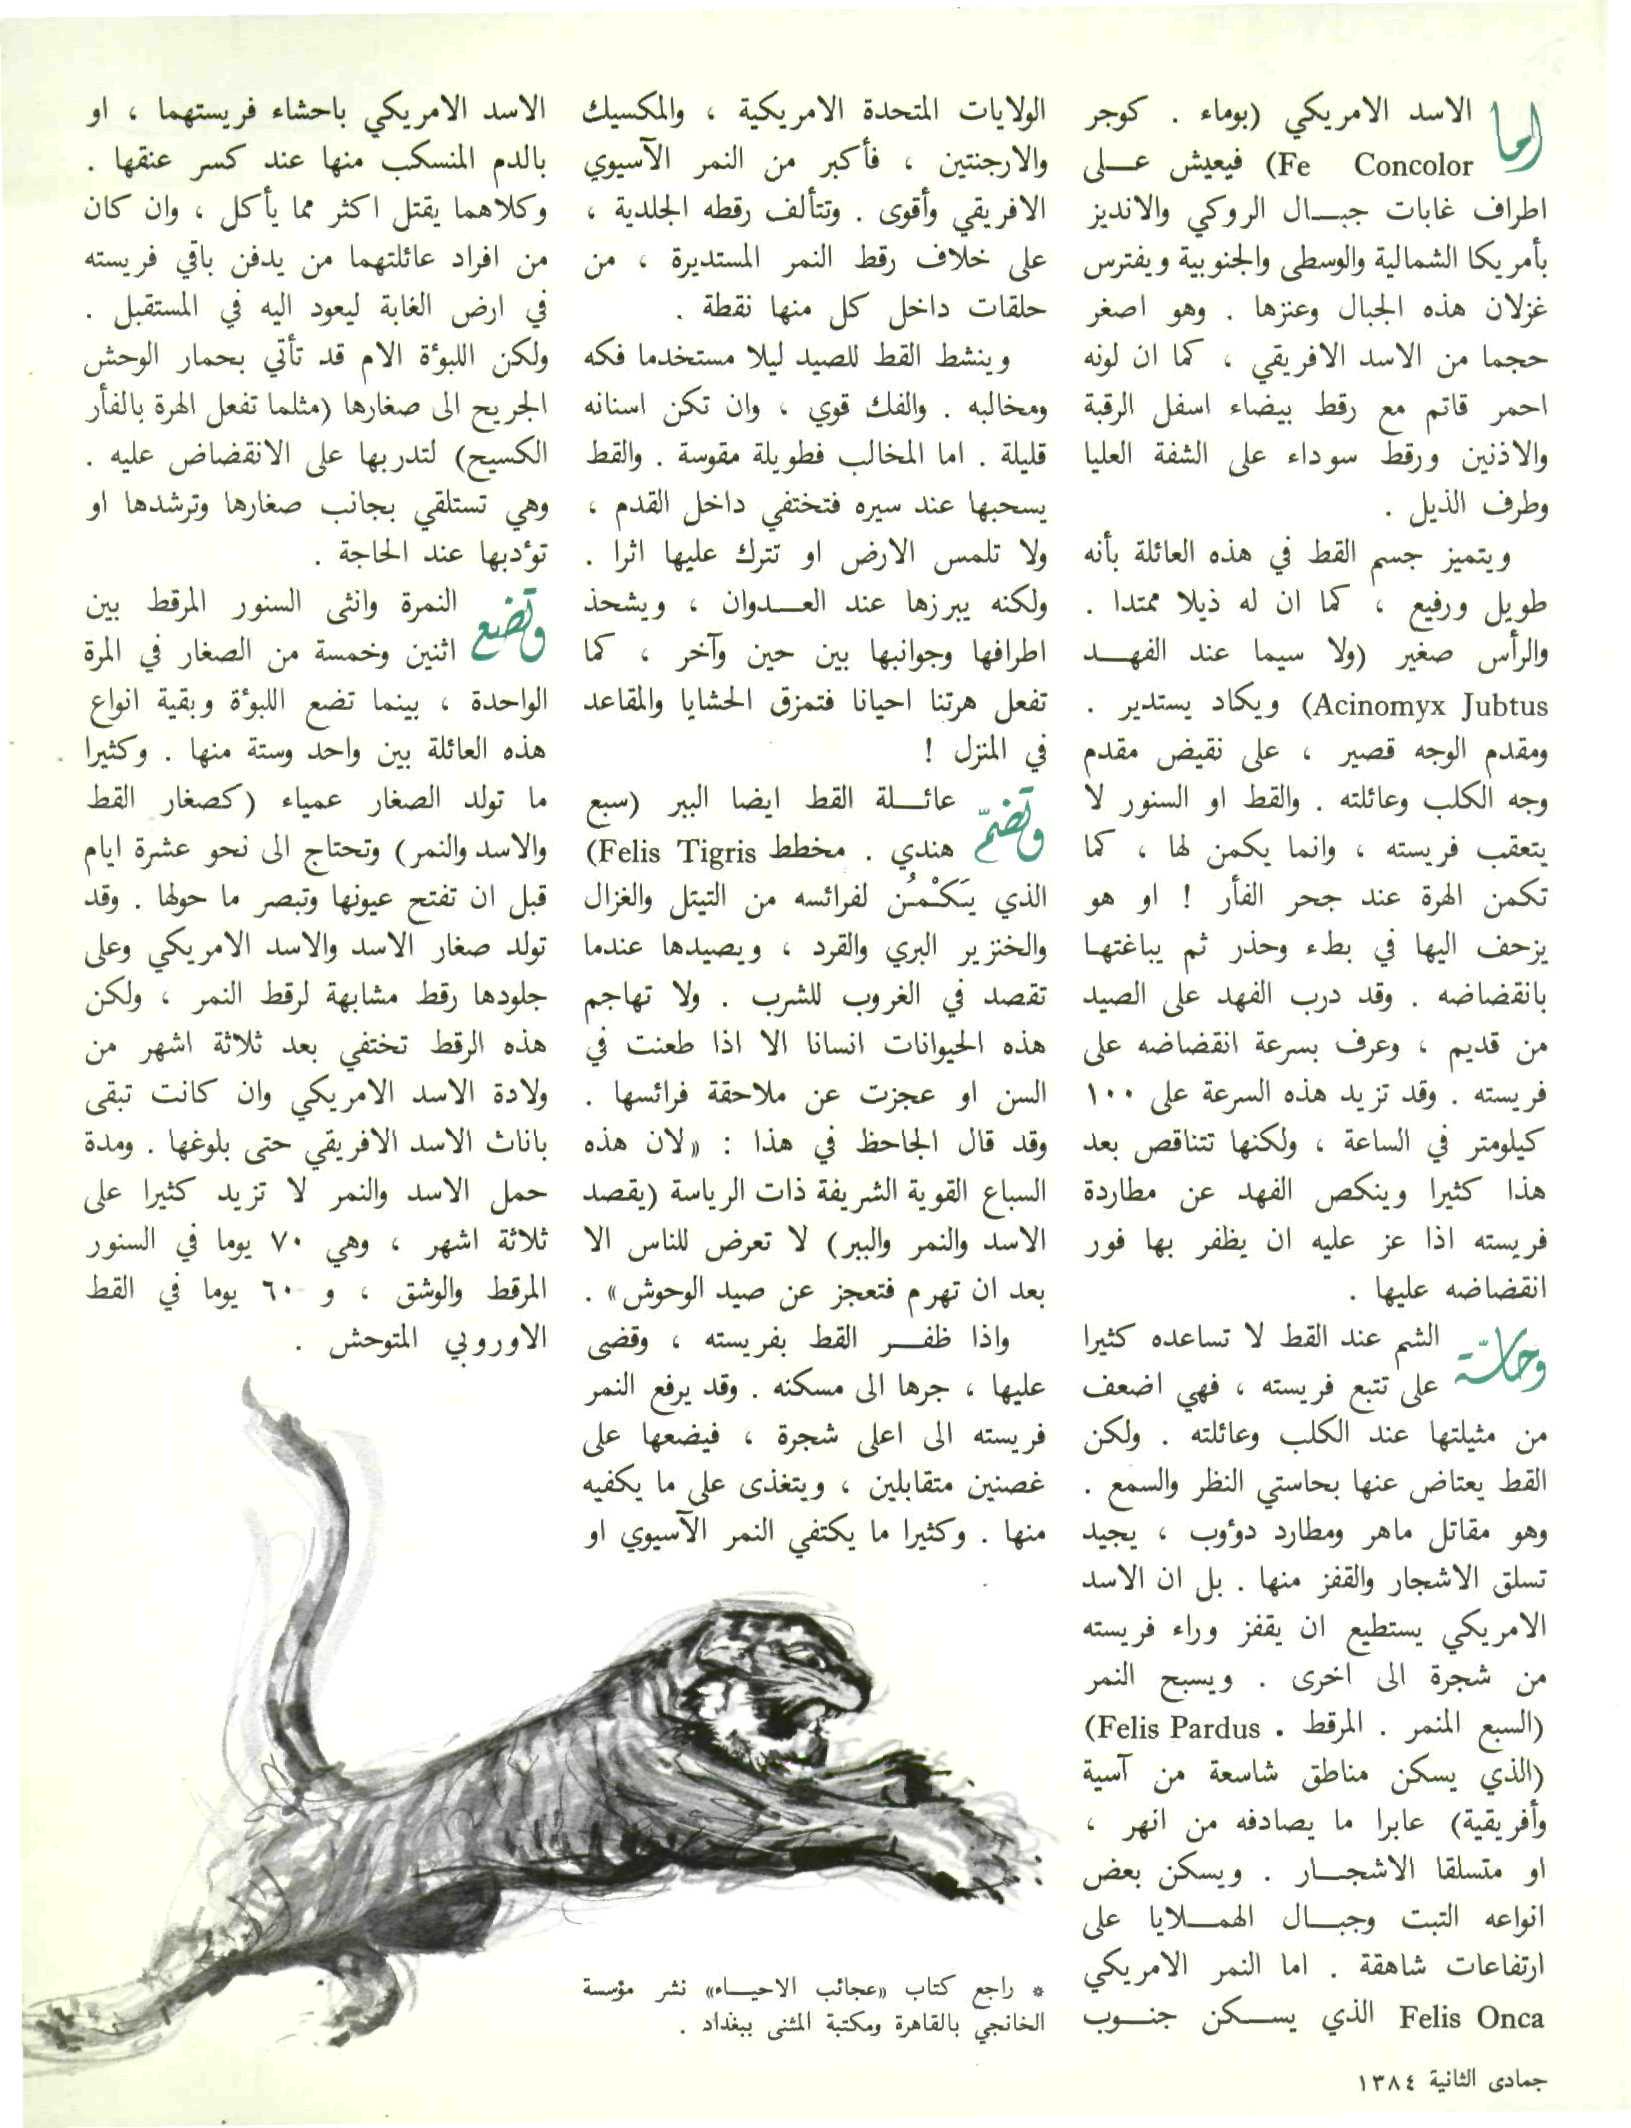 اما الاسد الامريكي (بوماء . كوجر
Fe Concolor) فيعيش عـلى
اطراف غابات جبـال الروكي والانديز
بأمريكا الشمالية والوسطى والجنوبية ويفترس
غزلان هذه الجبال وعنزها . وهو اصغر
حجما من الاسد الافريقي ، كما ان لونه
احمر قاتم مع رقط بيضاء اسفل الرقبة
والاذنين ورقط سوداء على الشفة العليا
وطرف الذيل .
ويتميز جسم القط في هذه العائلة بأنه
طويل ورفيع ، كما ان له ذيلا ممتدا .
والرأس صغير (ولا سيما عند الفهـد
Acinomyx Jubtus) ويكاد يستدير .
ومقدم الوجه قصير ، على نقيض مقدم
وجه الكلب وعائلته . والقط او السنور لا
يتعقب فريسته ، وانما يكمن لها ، كما
تكمن الهرة عند جحر الفأر ! او هو
يزحف اليها في بطء وحذر ثم يباغتهـا
بانقضاضه . وقد درب الفهد على الصيد
من قديم ، وعرف بسرعة انقضاضه على
فريسته . وقد تزيد هذه السرعة على ١٠٠
كيلومتر في الساعة ، ولكنها تتناقص بعد
هذا كثيرا وينكص الفهد عن مطاردة
فريسته اذا عز عليه ان يظفر بها فور
انقضاضه عليها .
وحاسّة الشم عند القط لا تساعده كثيرا
على تتبع فريسته ، فهي اضعف
من مثيلتها عند الكلب وعائلته . ولكن
القط يعتاض عنها بحاستي النظر والسمع .
وهو مقاتل ماهر ومطارد دوؤوب ، يجيد
تسلق الاشجار والقفز منها . بل ان الاسد
الامريكي يستطيع ان يقفز وراء فريسته
من شجرة الى اخرى . ويسبح النمر
(السبع المنمر . المرقط . Felis Pardus)
(الذي يسكن مناطق شاسعة من آسية
وأفريقية) عابرا ما يصادفه من انهر ،
او متسلقا الاشجـار . ويسكن بعض
انواعه التبت وجبـال الهمـلايا على
ارتفاعات شاهقة . اما النمر الامريكي
Felis Onca الذي يسـكن جنـوب
الولايات المتحدة الامريكية ، والمكسيك
والارجنتين ، فأكبر من النمر الآسيوي
الافريقي وأقوى . وتتألف رقطه الجلدية ،
على خلاف رقط النمر المستديرة ، من
حلقات داخل كل منها نقطة .
وينشط القط للصيد ليلا مستخدما فكه
ومخالبه . والفك قوي ، وان تكن اسنانه
قليلة . اما المخالب فطويلة مقوسة . والقط
يسحبها عند سيره فتختفي داخل القدم ،
ولا تلمس الارض او تترك عليها اثرا .
ولكنه يبرزها عند العـدوان ، ويشحذ
اطرافها وجوانبها بين حين وآخر ، كما
تفعل هرتنا احيانا فتمزق الحشايا والمقاعد
في المنزل !
وتضمّ عائـلة القط ايضا الببر (سبع
هندي . مخطط Felis Tigris)
الذي يَكْمُن لفرائسه من التيتل والغزال
والخنزير البري والقرد ، ويصيدها عندما
تقصد في الغروب للشرب . ولا تهاجم
هذه الحيوانات انسانا الا اذا طعنت في
السن او عجزت عن ملاحقة فرائسها .
وقد قال الجاحظ في هذا : «لان هذه
السباع القوية الشريفة ذات الرياسة (يقصد
الاسد والنمر والببر) لا تعرض للناس الا
بعد ان تهرم فتعجز عن صيد الوحوش» .
واذا ظفـر القط بفريسته ، وقضى
عليها ، جرها الى مسكنه . وقد يرفع النمر
فريسته الى اعلى شجرة ، فيضعها على
غصنين متقابلين ، ويتغذى على ما يكفيه
منها . وكثيرا ما يكتفي النمر الآسيوي او
* راجع كتاب «عجائب الاحيـاء» نشر مؤسسة
الخانجي بالقاهرة ومكتبة المثنى ببغداد .
الاسد الامريكي باحشاء فريستهما ، او
بالدم المنسكب منها عند كسر عنقها .
وكلاهما يقتل اكثر مما يأكل ، وان كان
من افراد عائلتهما من يدفن باقي فريسته
في ارض الغابة ليعود اليه في المستقبل .
ولكن اللبوٴة الام قد تأتي بحمار الوحش
الجريح الى صغارها (مثلما تفعل الهرة بالفأر
الكسيح) لتدربها على الانقضاض عليه .
وهي تستلقي بجانب صغارها وترشدها او
توٴدبها عند الحاجة .
وتضع النمرة وانثى السنور المرقط بين
اثنين وخمسة من الصغار في المرة
الواحدة ، بينما تضع اللبوٴة وبقية انواع
هذه العائلة بين واحد وستة منها . وكثيرا
ما تولد الصغار عمياء (كصغار القط
والاسد والنمر) وتحتاج الى نحو عشرة ايام
قبل ان تفتح عيونها وتبصر ما حولها . وقد
تولد صغار الاسد والاسد الامريكي وعلى
جلودها رقط مشابهة لرقط النمر ، ولكن
هذه الرقط تختفي بعد ثلاثة اشهر من
ولادة الاسد الامريكي وان كانت تبقى
باناث الاسد الافريقي حتى بلوغها . ومدة
حمل الاسد والنمر لا تزيد كثيرا على
ثلاثة اشهر ، وهي ٧٠ يوما في السنور
المرقط والوشق ، و ٦٠ يوما في القط
الاوروبي المتوحش .
جمادى الثانية ١٣٨٤